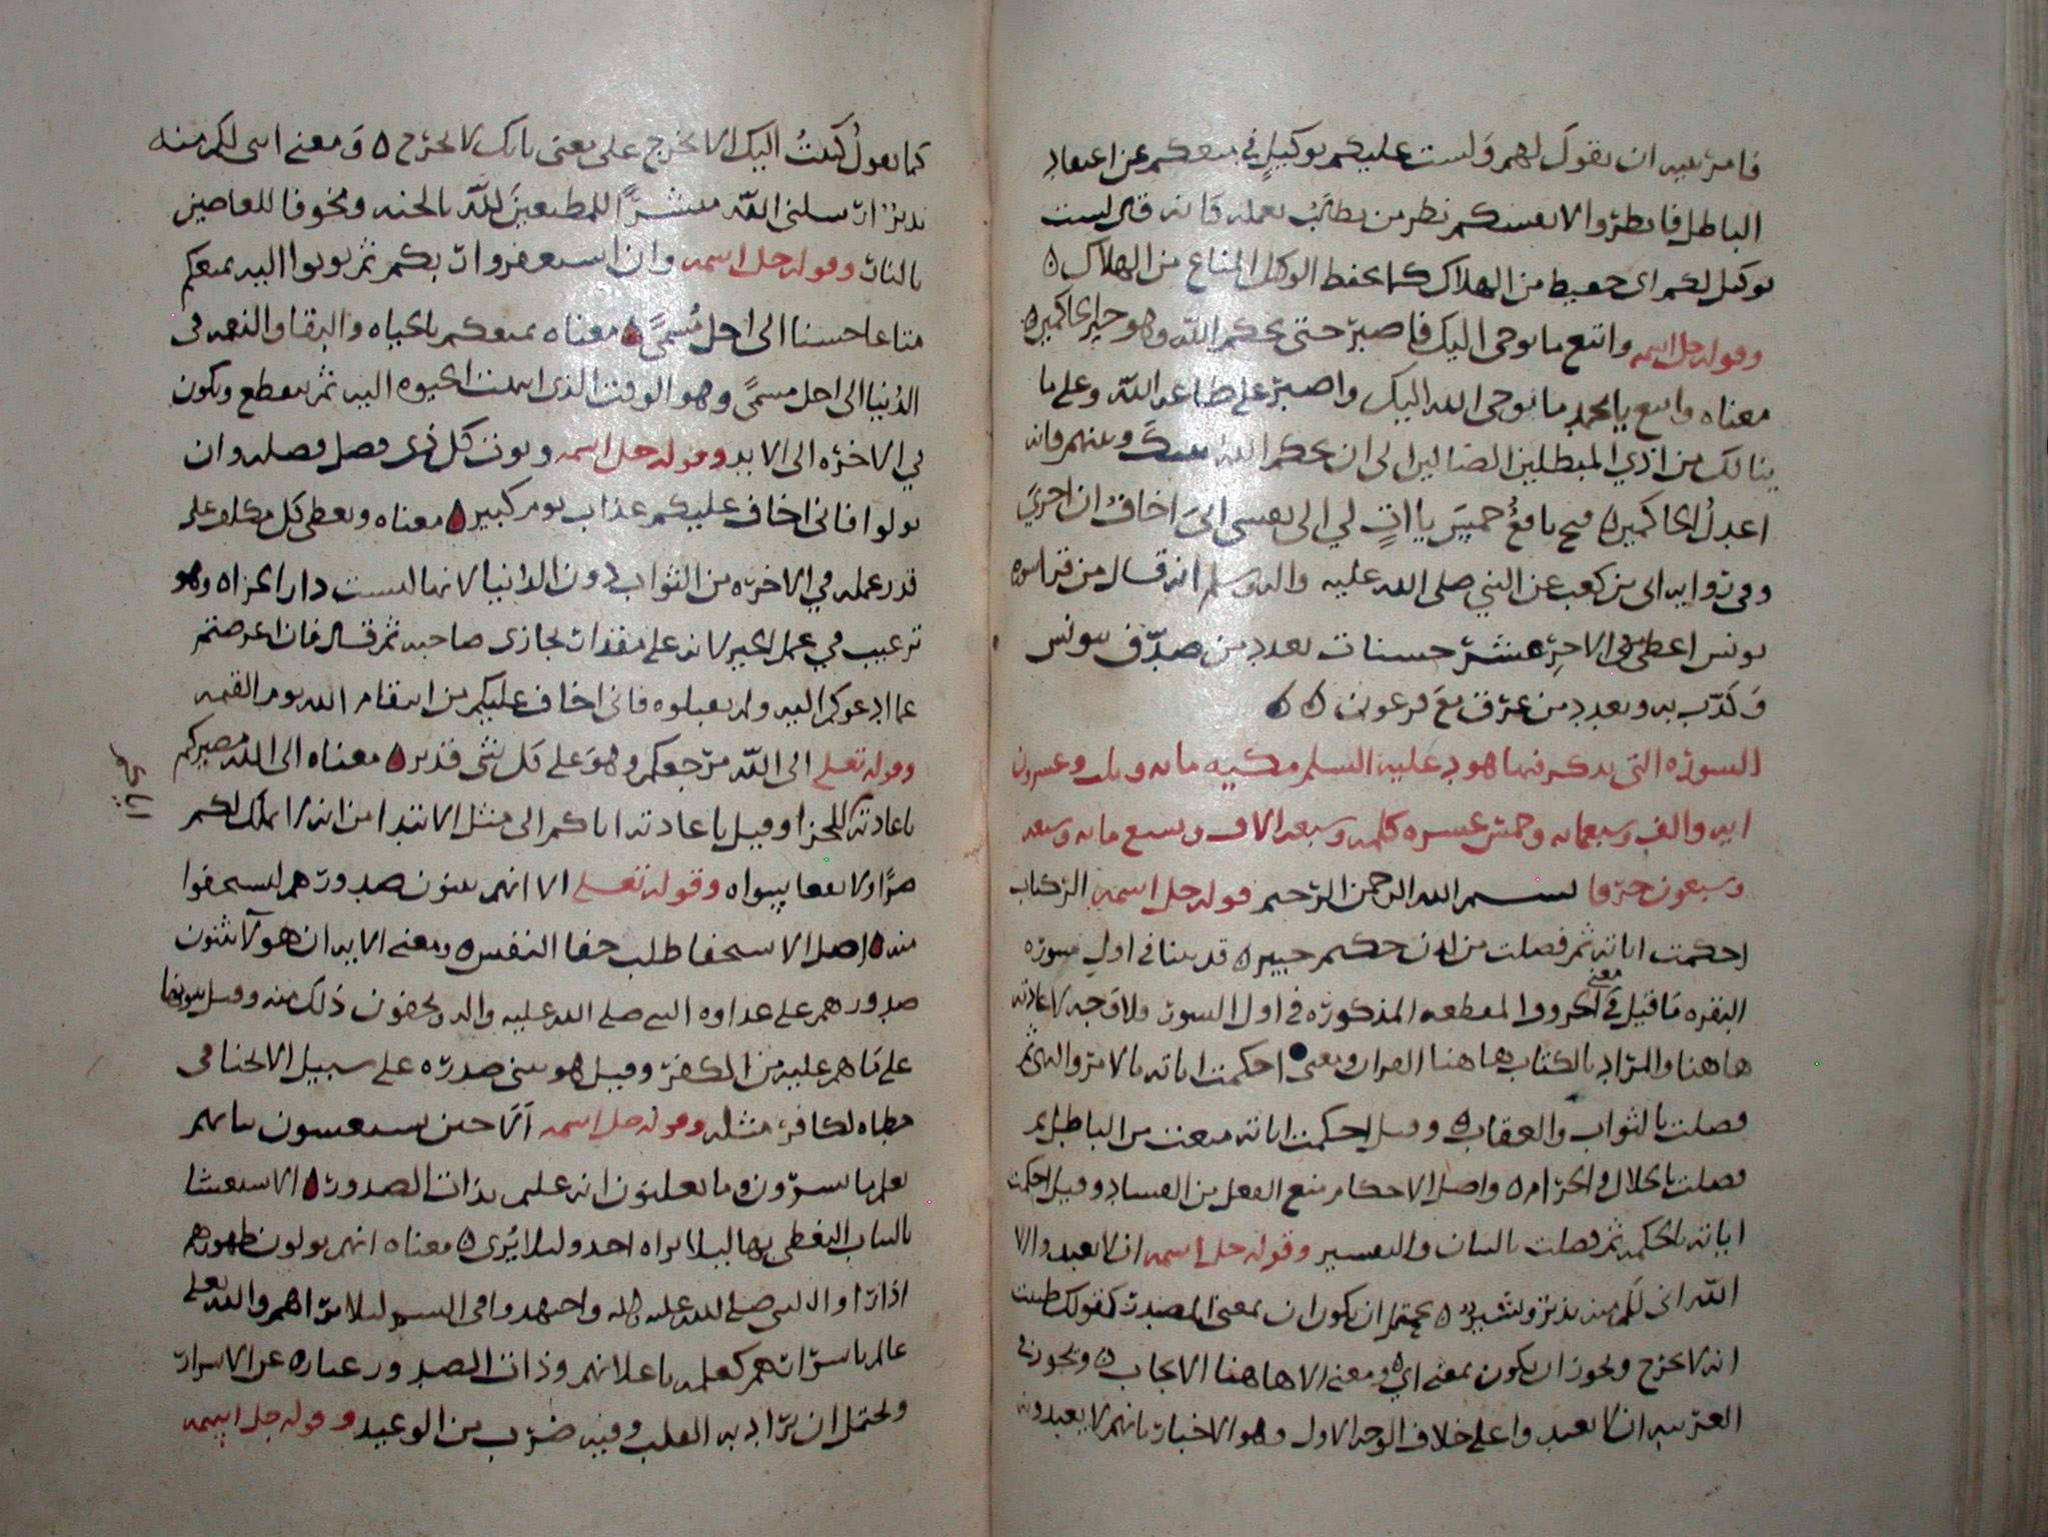 فامر نبيه ان يقول لهم وَلست عليكم بوكيلٍ في منعكم عن اعتقاد
الباطل فانظروا لانفسكم نظر من يطالب بعمله فانه قال لست
بوكيل لكم اى حفيظ من الهلاك كما يحفظ الوكيل المتاع من الهلاك ٥
وقوله جل اسمه واتبع ما يوحى اليك فاصبر حتى يحكم الله وهو خير الحاكمين ٥
معناه واتبع يا محمد ما يوحى الله اليك واصبر على طاعة الله وعلى ما
ينالك من اذي المبطلين الضالين الى ان يحكم الله بينك وبينهم فانه
اعدلُ الحاكمين ٥ فتح نافعٌ خمسَ ياات لي الى نفسى انىَ اخافُ ان اجريَ
وفى رواية ابى بن كعب عن النبي صلى الله عليه واله وسلم انه قال من قرا سورة
يونس اعطى من الاجر عشر حسنات بعدد من صدّق بيونس
وَكذّب به وبعدد من غرق مع فرعون ٥٥
السورة التى يذكر فيها هود عليه السلم مكيه مايه وثلث وعشرون
ايه والف وسبعمايه وخمس عشره كلمه وسبعه الاف وتسع مايه وسبعه
وسبعون حرفا بسم الله الرحمن الرحيم قوله جل اسمه الر كتاب
احكمت اياته ثم فصلت من لدن حكيم خبير ٥ قد بينا فى اول سورة
البقره ما قيل في معنى الحروف المقطعه المذكوره فى اول السور ولا وجه لاعادته
هاهنا والمراد بالكتاب هاهنا القران ومعنى احكمت اياته بالامر والنهى ثم
فصلت بالثواب والعقاب ٥ وقيل احكمت اياته منعت من الباطل ثم
فصلت بالحلال والحرام ٥ واصل الاحكام منع الفعل من الفساد وقيل احكمت
اياته بالحكمه ثم فصلت بالبيان والتفسير وقوله جل اسمه ان لا تعبدوا الا
الله انى لكم منه نذير وبشير ٥ يحتمل ان يكون ان بمعنى المصدر كقولك كتبت
انه لا تخرج ويجوز ان يكون بمعنى اي ٥ ومعنى الا هاهنا الايجاب ٥ ويجوز فى
العربيه ان لا تعبدوا على خلاف الوجه الاول وهو الاخبار بانهم لا يعبدونه
كما تقول كتبتُ اليك الا تخرج على معنى بانك لا تخرج ٥ وَمعنى انى لكم منه
نذير ارسلنى الله مبشرًا للمطيعين لله بالجنه ومخوفا للعاصين
بالنار وقوله جل اسمه وان استغفروا ربكم ثم توبوا اليه يمتعكم
متاعا حسنا الى اجل مُسمىً ٥ معناه يمتعكم بالحياه والبقا والنعم فى
الدُنيا الى اجل مسمىً وهو الوقت الذى انتهت الحيوه اليه ثم ينقطع ويكون
في الاخره الى الابد وقوله جل اسمه ويوت كل ذى فضل فضله وان
تولوا فانى اخاف عليكم عذاب يوم كبير ٥ معناه ويعطى كل مكلف على
قدر عمله في الاخره من الثواب دون الدنيا لانها ليست دار الجزاه وهو
ترغيب في عمل الخير لانه على مقدار يجازى صاحبه ثم قال فان اعرضتم
عما ادعوكم اليه ولم تقبلوه فانى اخاف عليكم من انتقام الله يوم القيمه
وقوله تعلى الى الله مرجعكم وهوَ على كل شى قدير ٥ معناه الى الله مصيركم
باعادته للجزا وقيل باعادته اياكم الى مثل الابتدا من انه لا يملك لكم
ضرًا ولا نفعا سواه وقوله تعلى الا انهم يثنون صدورهم ليستخفوا
منه ٥ اصل الاستخفا طلب خفا النفس ٥ ومعنى الايه ان هولآ يثنون
صدورهم على عداوه النبى صلى الله عليه واله يخفون ذلك منه وقيل يثنونها
على ما هم عليه من الكفر وقيل هو يثنى صدره على سبيل الانحنا فى
لكافر مثله وقوله جل اسمه الا حين يستغشون ثيابهم
يعلم ما يسرون وما يعلنون انه عليم بذات الصدور ٥ الاستغشا
بالثياب التغطى بها ليلا يراه احد وليلا يُرى ٥ معناه انهم يولون ظهورهم
اذا راوا النبى صلى الله عليه واله واجتهدوا فى التستر ليلا يراهم والله تعلى
عالم باسرارهم كعلمه باعلانهم وذات الصدور عباره عن الاسرار
ويحتمل ان يراد به القلب وفيه ضرب من الوعيد وقوله جل اسمه